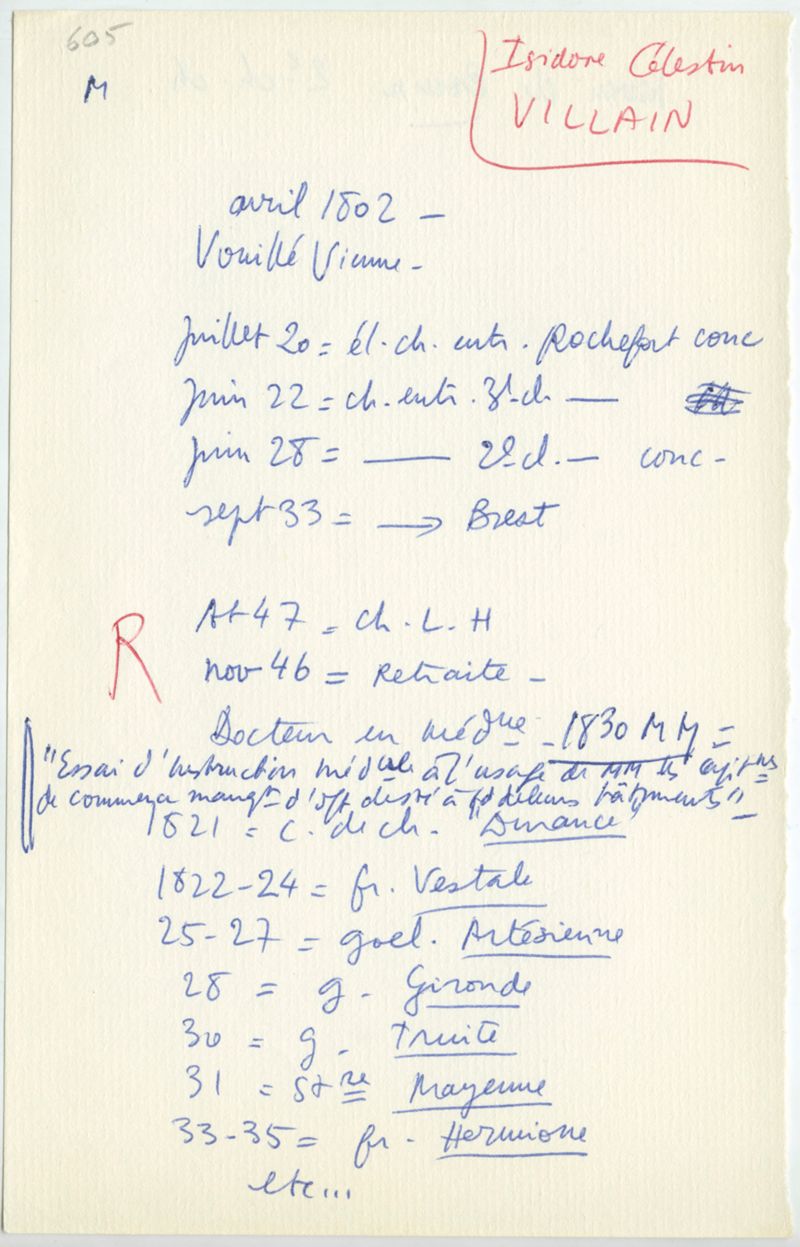 605
M
Isidore Célestin
VILLAIN
avril 1802 –
Vouillé Vienne –
Juillet 20 = él. ch. entr. Rochefort conc
Juin 22 = ch. entr. 3e cl —
Juin 28 = — 2e cl. — conc –
sept 33 = → Brest
At 47 = ch. L. H
R
nov 46 = Retraite –
Docteur en médne – 1830 MM =
"Essai d'instruction médcale à l'usage de MM les capitnes
de commerce manqt d'off de sté à bd de leurs bâtiments" –
1821 = c. de ch. "Durance"
1822-24 = fr. Vestale
25-27 = goel. Artésienne
28 = g. Gironde
30 = g. Truite
31 = St re Mayenne
33-35 = fr. Hermione
etc...